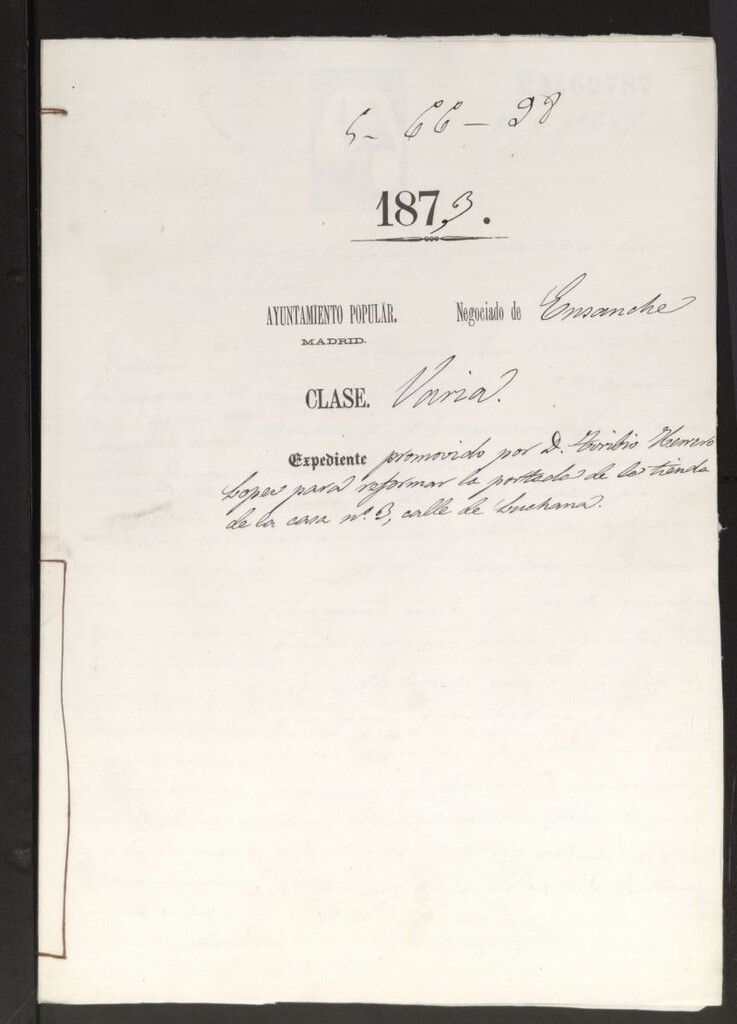 5- 66 - 28
1873.
AYUNTAMIENTO POPULAR. Negociado de Ensanche
MADRID.
CLASE. Varia.
Expediente promovido por D. Toribio Herrero
Lopez para reformar la portada de la tienda
de la casa nº. 3, calle de Luchana.